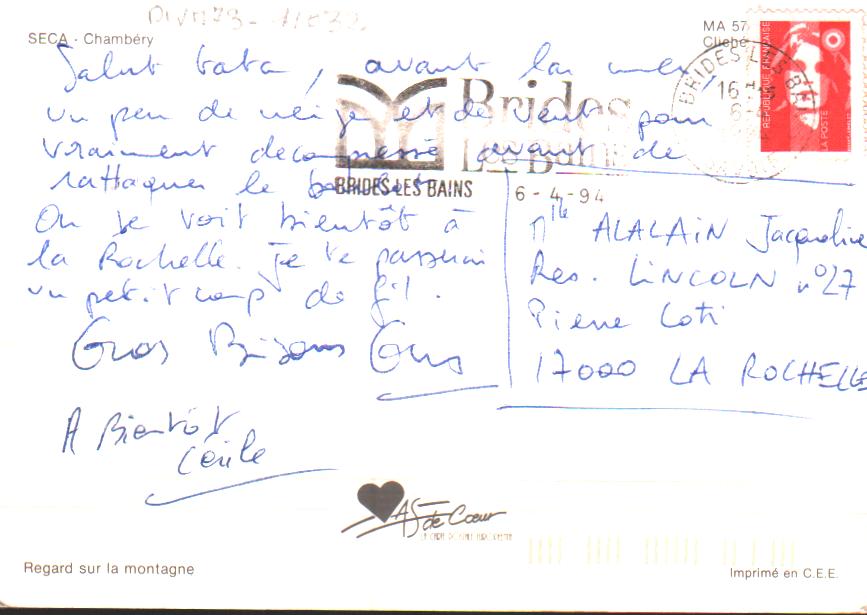 SECA - Chambéry
MA 57
Cliché
Salut tata, avant la mer,
un peu de neige et de vent pour
vraiment decompressé avant de
rattaquer le
On se voit bientôt à
la Rochelle. Je te passerai
un petit coup de fil.
Gros Bisous
A Bientôt
Cécile
Brides
Les Bains
BRIDES-LES-BAINS
6-4-94
BRIDES LES B
16
RÉPUBLIQUE FRANÇAISE
LA POSTE
Mlle ALALAIN Jacqueline
Res. LINCOLN n°27
Pierre Loti
17000 LA ROCHELLE
AS de Cœur
LA CARTE POSTALE EUROPÉENNE
Regard sur la montagne
Imprimé en C.E.E.